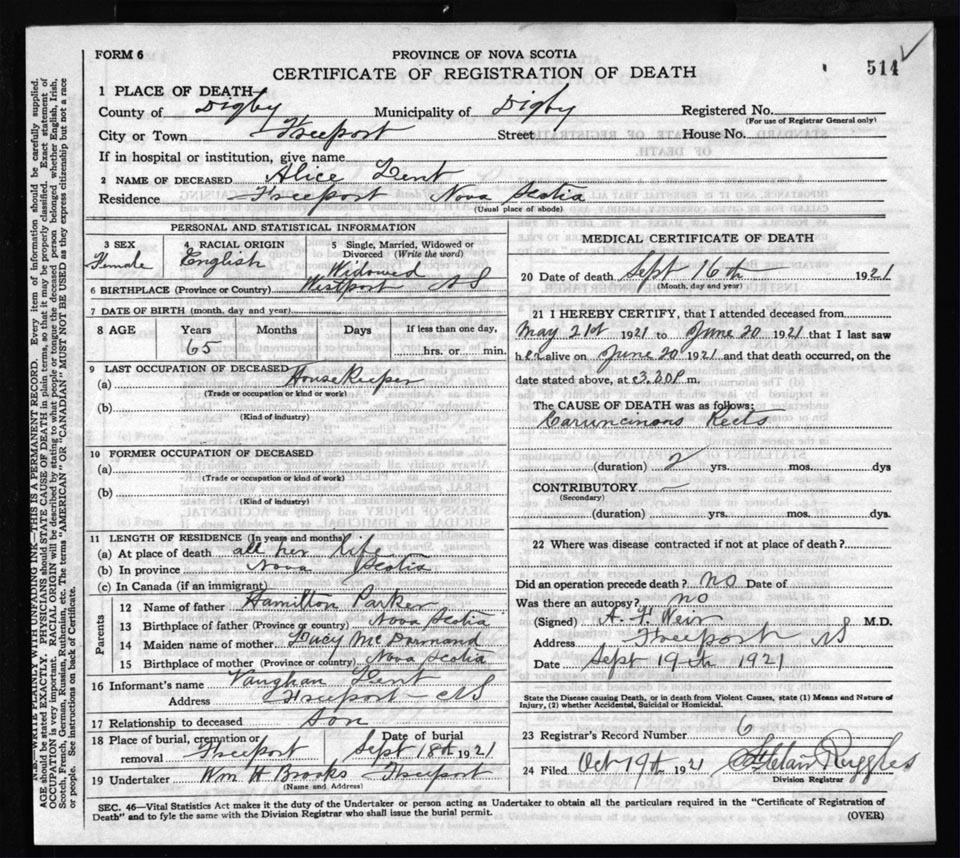 FORM 6
PROVINCE OF NOVA SCOTIA
CERTIFICATE OF REGISTRATION OF DEATH
514
1 PLACE OF DEATH
County of Digby Municipality of Digby Registered No.
(For use of Registrar General only)
City or Town Freeport Street House No.
If in hospital or institution, give name
2 NAME OF DECEASED Alice Lent
Residence Freeport Nova Scotia
(Usual place of abode)
PERSONAL AND STATISTICAL INFORMATION
3 SEX Female
4 RACIAL ORIGIN English
5 Single, Married, Widowed or Divorced (Write the word) Widowed
6 BIRTHPLACE (Province or Country) Westport NS
7 DATE OF BIRTH (month, day and year)
8 AGE Years Months Days If less than one day,
65 hrs. or min.
9 LAST OCCUPATION OF DECEASED
(a) House Keeper
(Trade or occupation or kind or work)
(b)
(Kind of industry)
10 FORMER OCCUPATION OF DECEASED
(a)
(Trade or occupation or kind or work)
(b)
(Kind of industry)
11 LENGTH OF RESIDENCE (In years and months)
(a) At place of death all her life
(b) In province Nova Scotia
(c) In Canada (if an immigrant)
Parents
12 Name of father Hamilton Parker
13 Birthplace of father (Province or country) Nova Scotia
14 Maiden name of mother Lucy
15 Birthplace of mother (Province or country) Nova Scotia
16 Informant's name Vaughan Lent
Address Freeport NS
17 Relationship to deceased Son
18 Place of burial, cremation or removal Freeport Date of burial Sept 18th 1921
19 Undertaker Wm H Brooks Freeport
(Name and Address)
MEDICAL CERTIFICATE OF DEATH
20 Date of death Sept 16th 1921
(Month, day and year)
21 I HEREBY CERTIFY, that I attended deceased from
May 21st 1921 to June 20 1921 that I last saw
her alive on June 20 1921 and that death occurred, on the
date stated above, at 3.30 P. m.
The CAUSE OF DEATH was as follows:
(duration) 2 yrs. mos. dys
CONTRIBUTORY
(Secondary)
(duration) yrs. mos. dys.
22 Where was disease contracted if not at place of death?
Did an operation precede death? no Date of
Was there an autopsy? no
(Signed) A. F. Weir M.D.
Address Freeport NS
Date Sept 19th 1921
State the Disease causing Death, or in death from Violent Causes, state (1) Means and Nature of
Injury, (2) whether Accidental, Suicidal or Homicidal.
23 Registrar's Record Number 6
24 Filed Oct 19th 1921 Ruggles
Division Registrar
SEC. 46—Vital Statistics Act makes it the duty of the Undertaker or person acting as Undertaker to obtain all the particulars required in the "Certificate of Registration of
Death" and to fyle the same with the Division Registrar who shall issue the burial permit.
(OVER)
N.B.—WRITE PLAINLY WITH UNFADING INK—THIS IS A PERMANENT RECORD. Every item of information should be carefully supplied.
AGE should be stated EXACTLY. PHYSICIANS should STATE CAUSE OF DEATH in plain terms, so that it may be properly classified. Exact statement of
OCCUPATION is very important. RACIAL ORIGIN will be described by stating to what people or tongue the deceased person belonged whether English, Irish,
Scotch, French, German, Russian, Ruthenian, etc. The terms "AMERICAN" OR "CANADIAN" MUST NOT BE USED as they express citizenship but not a race
or people. See instructions on back of Certificate.